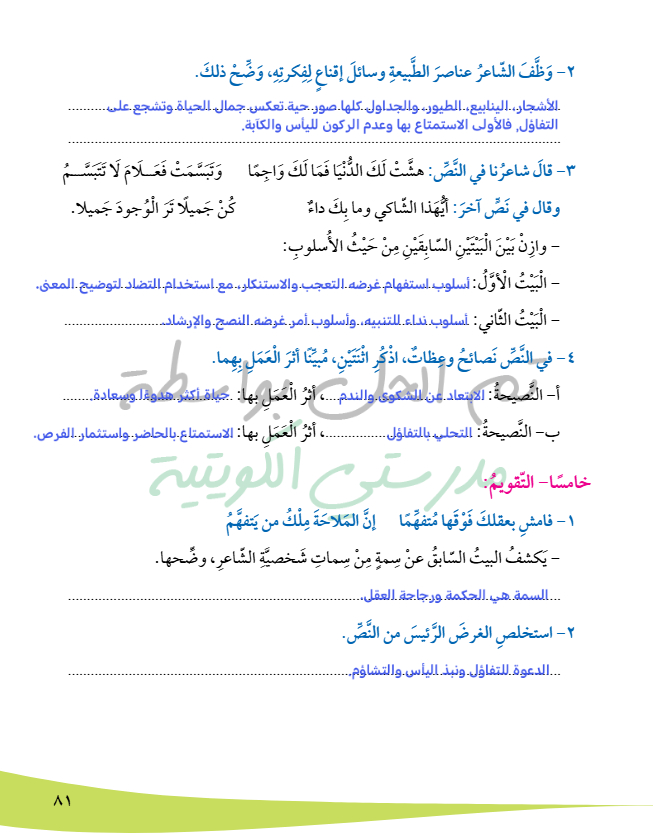 ٢- وَظَّفَ الشّاعرُ عناصرَ الطَّبيعةِ وسائلَ إقناعٍ لِفِكرتِهِ، وَضِّحْ ذلكَ.
الأشجار، الينابيع، الطيور، والجداول كلها صور حية تعكس جمال الحياة وتشجع على
التفاؤل، فالأولى الاستمتاع بها وعدم الركون لليأس والكآبة.
٣- قالَ شاعرُنا في النَّصِّ: هشَّتْ لَكَ الدُّنْيَا فَمَا لَكَ وَاجِمًا وَتَبَسَّمَتْ فَعَــلَامَ لَا تَتَبَسَّــمُ
وقال في نَصٍّ آخرَ: أيُّهَذا الشّاكي وما بِكَ داءٌ كُنْ جَميلًا تَرَ الْوُجودَ جَميلا.
– وازِنْ بَيْنَ الْبَيْتَيْنِ السّابِقَيْنِ مِنْ حَيْثُ الأُسلوبِ:
– الْبَيْتُ الْأوَّلُ: أسلوب استفهام غرضه التعجب والاستنكار، مع استخدام التضاد لتوضيح المعنى.
– الْبَيْتُ الثّاني: أسلوب نداء للتنبيه، وأسلوب أمر غرضه النصح والإرشاد.
٤- في النَّصِّ نَصائحُ وعِظاتٌ، اذْكُرِ اثْنَتَيْنِ، مُبيِّنًا أثرَ الْعَمَلِ بِهِما.
أ- النَّصيحةُ: الابتعاد عن الشكوى والندم، أثرُ الْعَمَلِ بها: حياة أكثر هدوءًا وسعادة.
ب- النَّصيحةُ: التحلي بالتفاؤل، أثرُ الْعَمَلِ بها: الاستمتاع بالحاضر واستثمار الفرص.
تم الحل بواسطة
مدرستي الكويتية
خامسًا- التّقويمُ:
١- فامشِ بعقلكَ فَوْقَها مُتفهِّمًا إنَّ المَلاحَةَ مِلْكُ من يَتفهَّمُ
– يَكشفُ البيتُ السّابقُ عنْ سِمةٍ مِنْ سِماتِ شَخصيَّةِ الشّاعرِ، وضِّحها.
السمة هي الحكمة ورجاحة العقل.
٢- استخلصِ الغرضَ الرَّئيسَ من النَّصِّ.
الدعوة للتفاؤل ونبذ اليأس والتشاؤم.
٨١